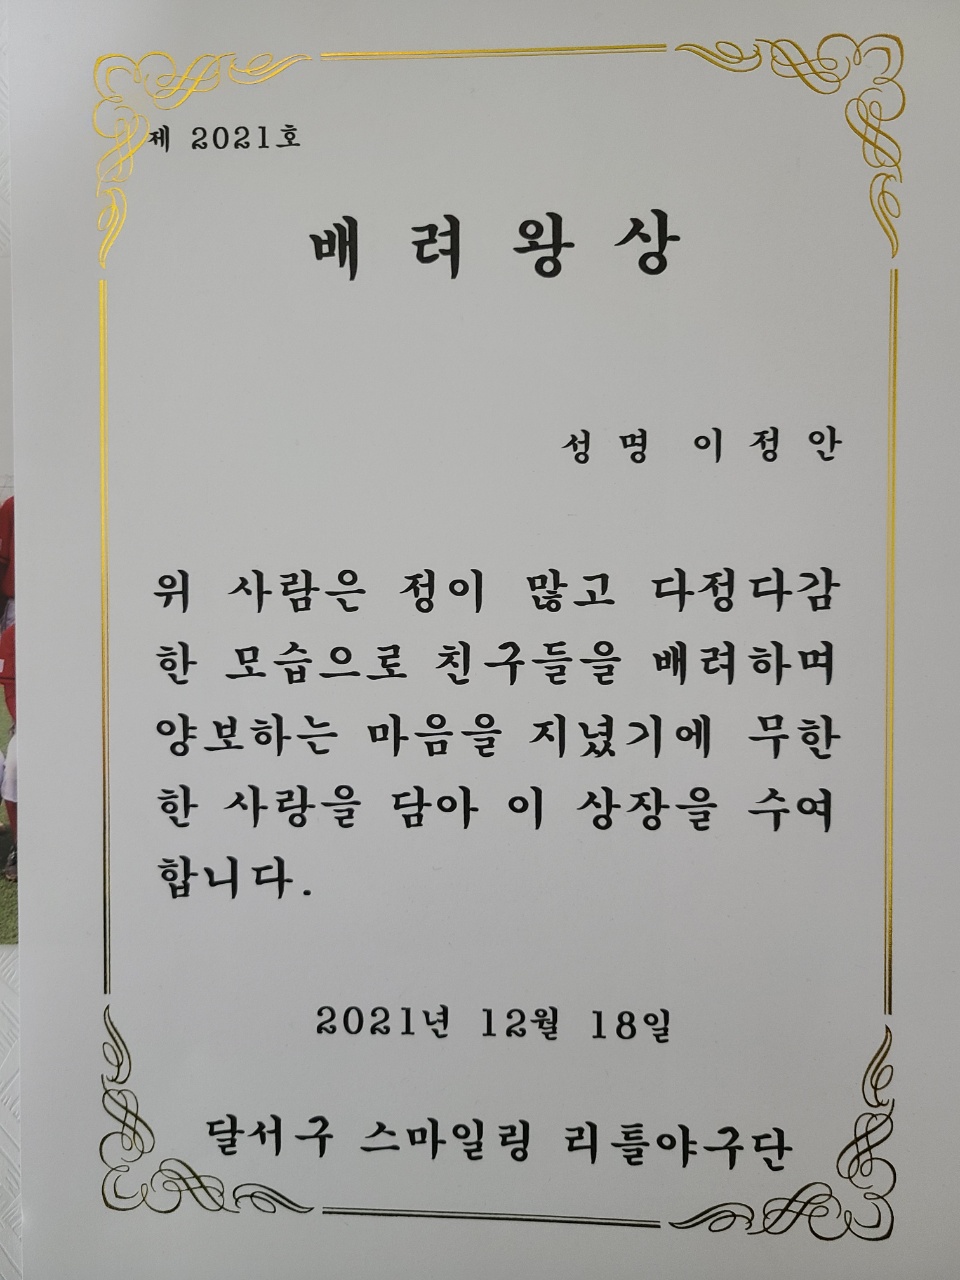 제 2021호
배려왕상
성명 이정안
위 사람은 정이 많고 다정다감
한 모습으로 친구들을 배려하며
양보하는 마음을 지녔기에 무한
한 사랑을 담아 이 상장을 수여
합니다.
2021년 12월 18일
달서구 스마일링 리틀야구단